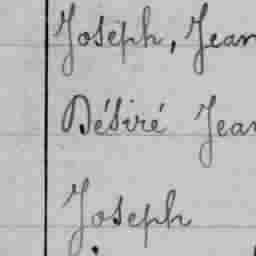 Joseph, Jean
Désiré Jean
Joseph